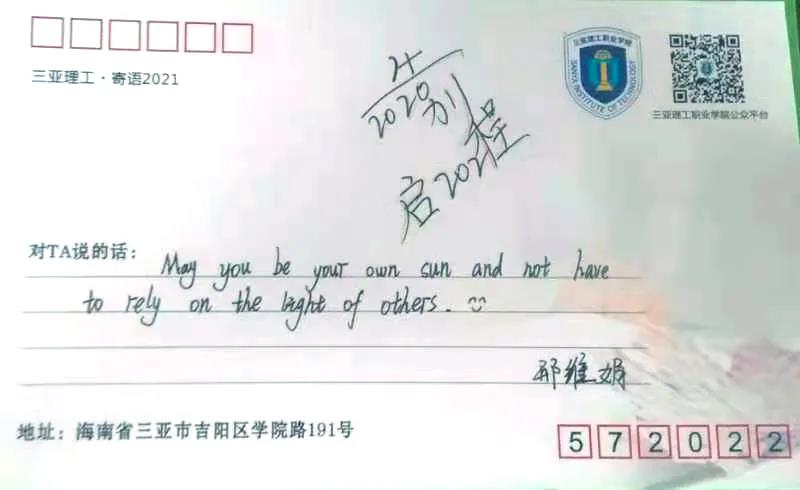 三亚理工·寄语2021
三亚理工职业学院
SANYA INSTITUTE OF TECHNOLOGY
三亚理工职业学院公众平台
2020别
启2021程
对TA说的话:
May you be your own sun and not have
to rely on the light of others.
邢维娟
地址:海南省三亚市吉阳区学院路191号
572022